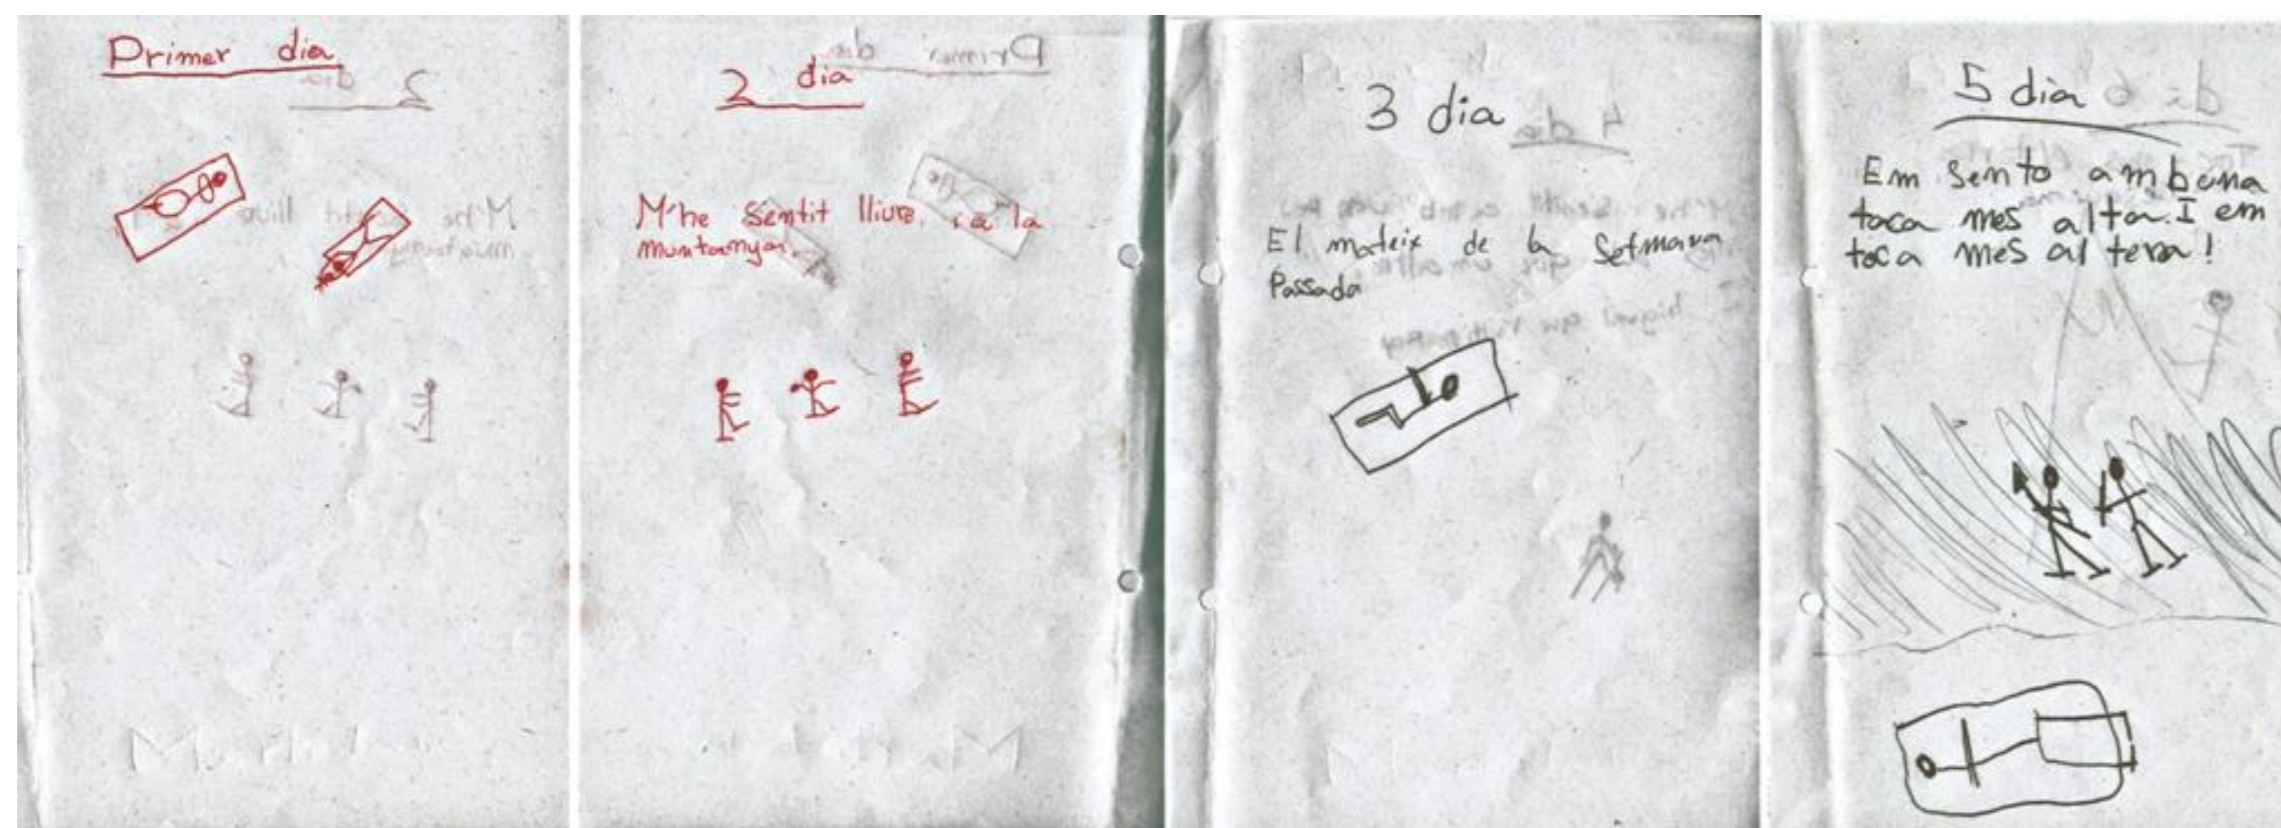 Primer dia
2 dia
M'he Sentit lliure. i a la
muntanya.
3 dia
El mateix de la Setmana
Passada
5 dia
Em Sento amb una
toca mes alta. I em
toca mes al terra!